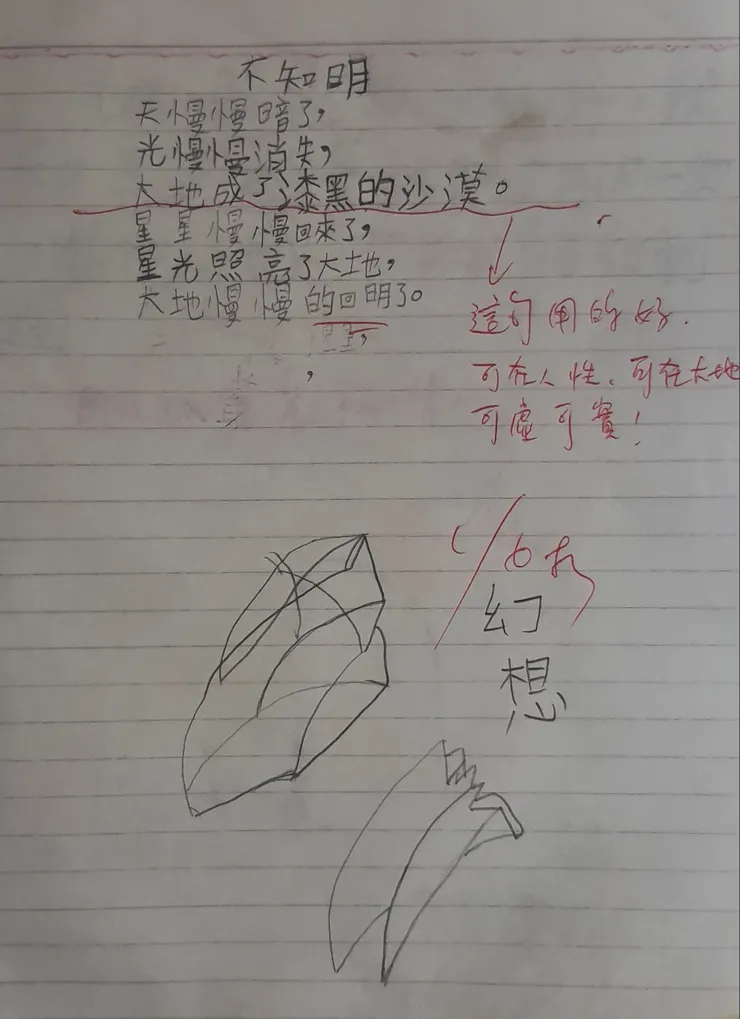 不知明
天慢慢暗了,
光慢慢消失,
大地成了漆黑的沙漠。
星星慢慢回來了,
星光照亮了大地,
大地慢慢的回明了。
這句用的好.
可在人性、可在大地
可虛可實!
幻
想